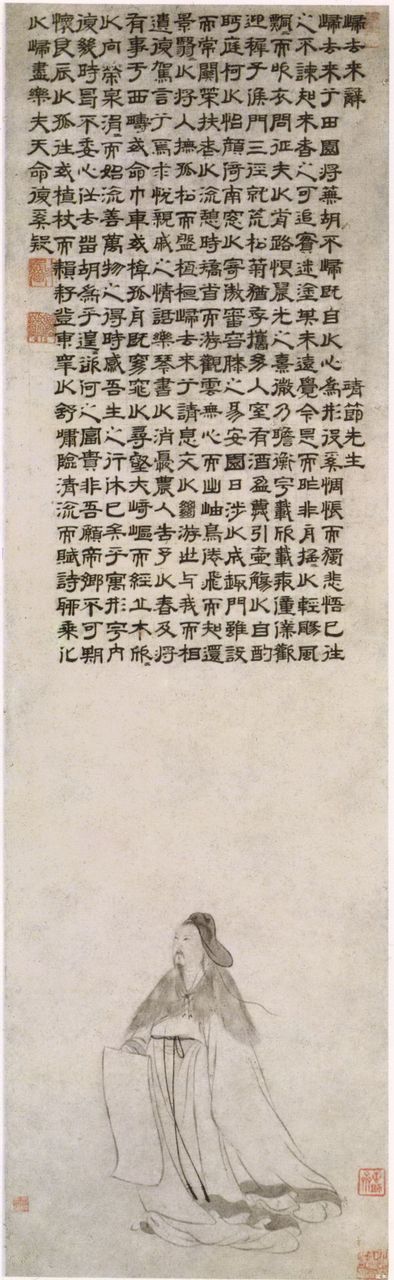 歸去來辭　靖節先生
歸去來兮田園將蕪胡不歸既自以心為形役奚惆悵而獨悲悟已往
之不諫知來者之可追實迷塗其未遠覺今是而昨非舟搖以輕颺風
飄〻而吹衣問征夫以前路恨晨光之熹微乃瞻衡宇載欣載奔僮僕歡
迎稚子候門三徑就荒松菊猶存攜幼入室有酒盈罇引壺觴以自酌
眄庭柯以怡顏倚南窗以寄傲審容膝之易安園日涉以成趣門雖設
而常關策扶老以流憩時矯首而游觀雲無心而出岫鳥倦飛而知還
景翳〻以將入撫孤松而盤桓歸去來兮請息交以絕游世与我而相
遺復駕言兮焉求悅親戚之情話樂琴書以消憂農人告予以春及將
有事于西疇或命巾車或棹孤舟既窈窕以尋壑亦崎嶇而經丘木欣〻
以向榮泉涓〻而始流善萬物之得時感吾生之行休已矣乎寓形宇內
復幾時曷不委心任去留胡為乎遑〻欲何之富貴非吾願帝鄉不可期
懷良辰以孤往或植杖而耘耔登東皋以舒嘯臨清流而賦詩聊乘化
以歸盡樂夫天命復奚疑